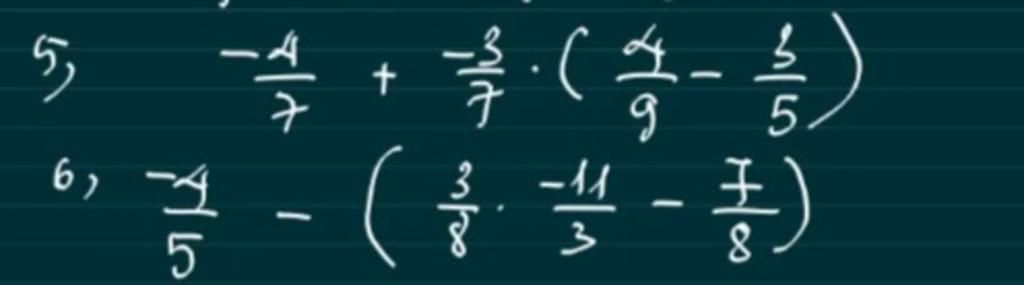 5, -4/7 + -3/7 · ( 4/9 - 3/5 )
6, -4/5 - ( 3/8 · -11/3 - 7/8 )